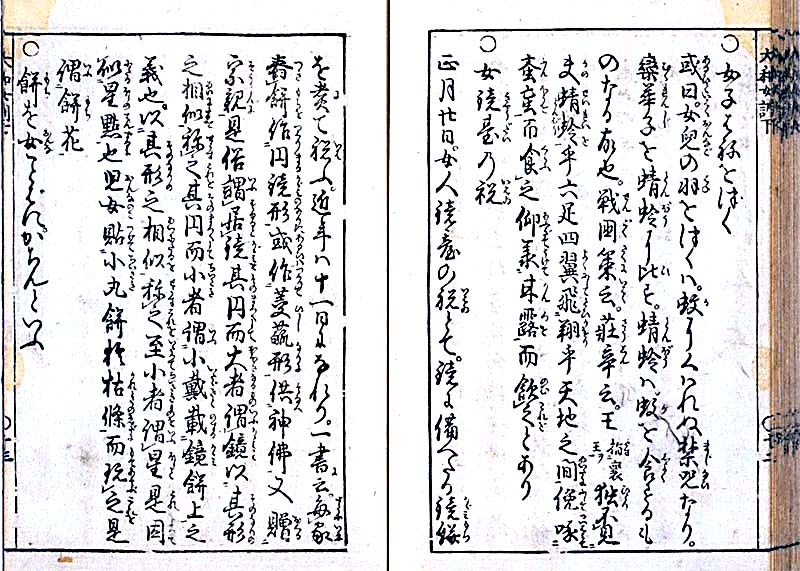 ○女子はねをつく
或曰。女兒の羽をつくハ。蚊にくハれぬ禁咒なり。
木欒子を蜻蛉に比す。蜻蛉ハ蚊を食ふもの
のなり故也。戦国策云。荘辛云。王独不見
夫蜻蛉乎六足四翼飛翔乎天地之間俛啄
蚊虻而食之仰承甘露而飲之とあり
○女鏡臺の祝
正月廿日。女人鏡臺の祝とて。鏡に備へたる鏡餅
を煮て祝ふ。近年ハ十一日になれり。一書云。毎家
舂餅作円鏡形或作菱葩形供神佛又贈
宗親是俗謂居鏡其円而大者謂鏡以其形
之相似称之其円而小者謂小戴戴鏡餅上之
義也。以其形之相似称之至小者謂星是因
似星點也児女貼小丸餅於枯條而玩之是
謂餅花
○餅を女ことばにかちんといふ